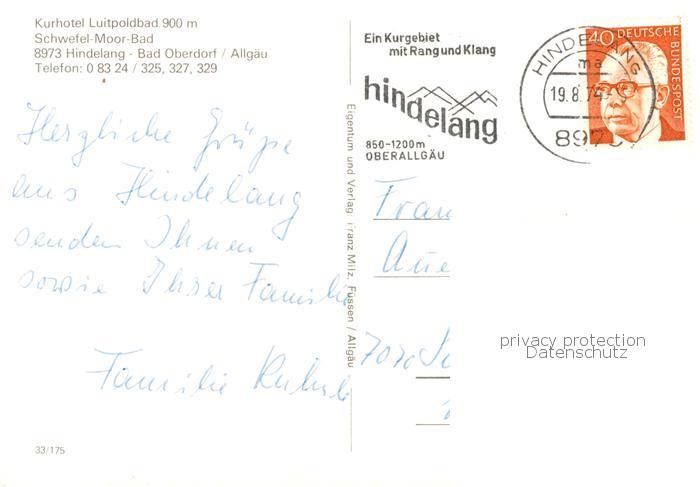 Kurhotel Luitpoldbad 900 m
Schwefel-Moor-Bad
8973 Hindelang - Bad Oberdorf / Allgäu
Telefon: 0 83 24 / 325, 327, 329
Herzliche Grüße
aus Hindelang
senden Ihnen
sowie Ihrer Familie
Familie
33/175
Eigentum und Verlag: Franz Milz, Füssen / Allgäu
Ein Kurgebiet
mit Rang und Klang
hindelang
850-1200m
OBERALLGÄU
HINDELANG
ma
19.8.74
897
40 DEUTSCHE
BUNDESPOST
Frau
7030
privacy protection
Datenschutz